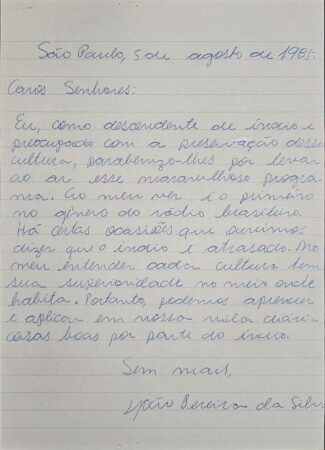 São Paulo, 5 de agosto de 1985.
Caros Senhores:
Eu, como descendente de índio e
preocupado com a preservação dessa
cultura, parabenizo-lhes por levar
ao ar esse maravilhoso progra
ma. Ao meu ver é o primeiro
no gênero do rádio brasileiro.
Há certas ocasiões que ouvimos
dizer que o índio é atrasado. No
meu entender cada cultura tem
sua superioridade no meio onde
habita. Portanto, podemos aprender
e aplicar em nossa vida diária
coisas boas por parte do índio.
Sem mais,
João Pereira da Silva